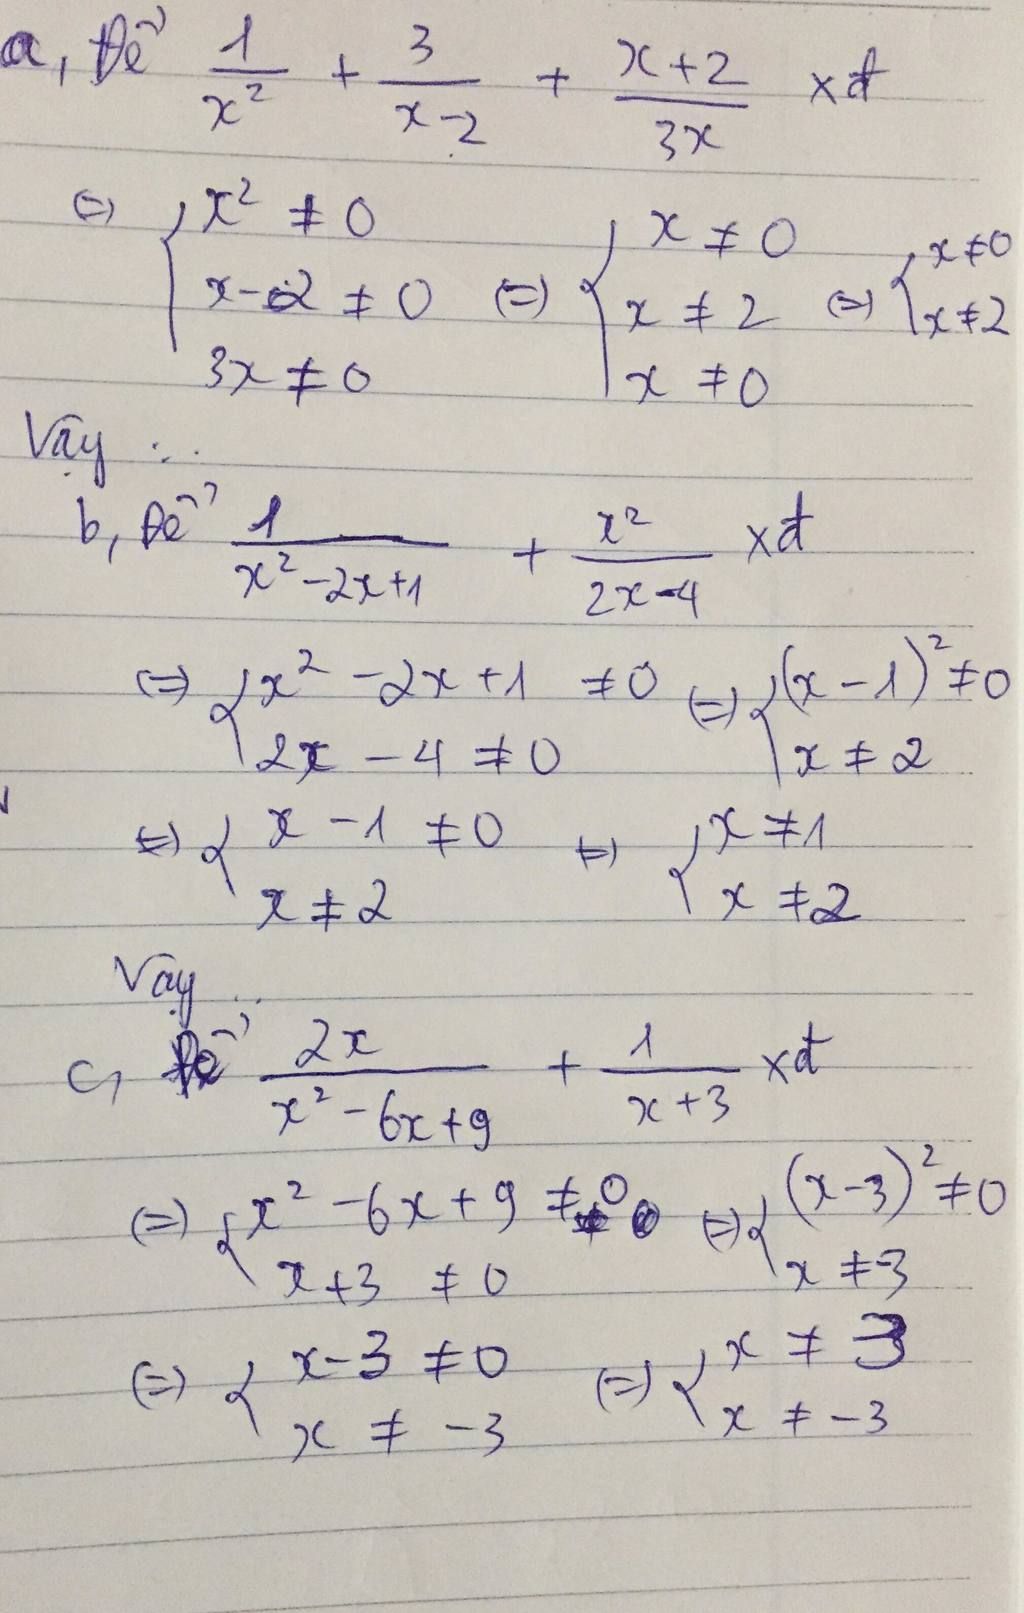 a, Để 1/x² + 3/(x-2) + (x+2)/3x xđ
(=) { x² ≠ 0 ; x-2 ≠ 0 ; 3x ≠ 0 (=) { x ≠ 0 ; x ≠ 2 ; x ≠ 0 (=) { x ≠ 0 ; x ≠ 2
Vậy ...
b, Để 1/(x²-2x+1) + x²/(2x-4) xđ
(=) { x² -2x +1 ≠ 0 ; 2x - 4 ≠ 0 (=) { (x-1)² ≠ 0 ; x ≠ 2
(=) { x -1 ≠ 0 ; x ≠ 2 (=) { x ≠ 1 ; x ≠ 2
Vậy ...
c, Để 2x/(x²-6x+9) + 1/(x+3) xđ
(=) { x² -6x + 9 ≠ 0 ; x+3 ≠ 0 (=) { (x-3)² ≠ 0 ; x ≠ -3
(=) { x-3 ≠ 0 ; x ≠ -3 (=) { x ≠ 3 ; x ≠ -3